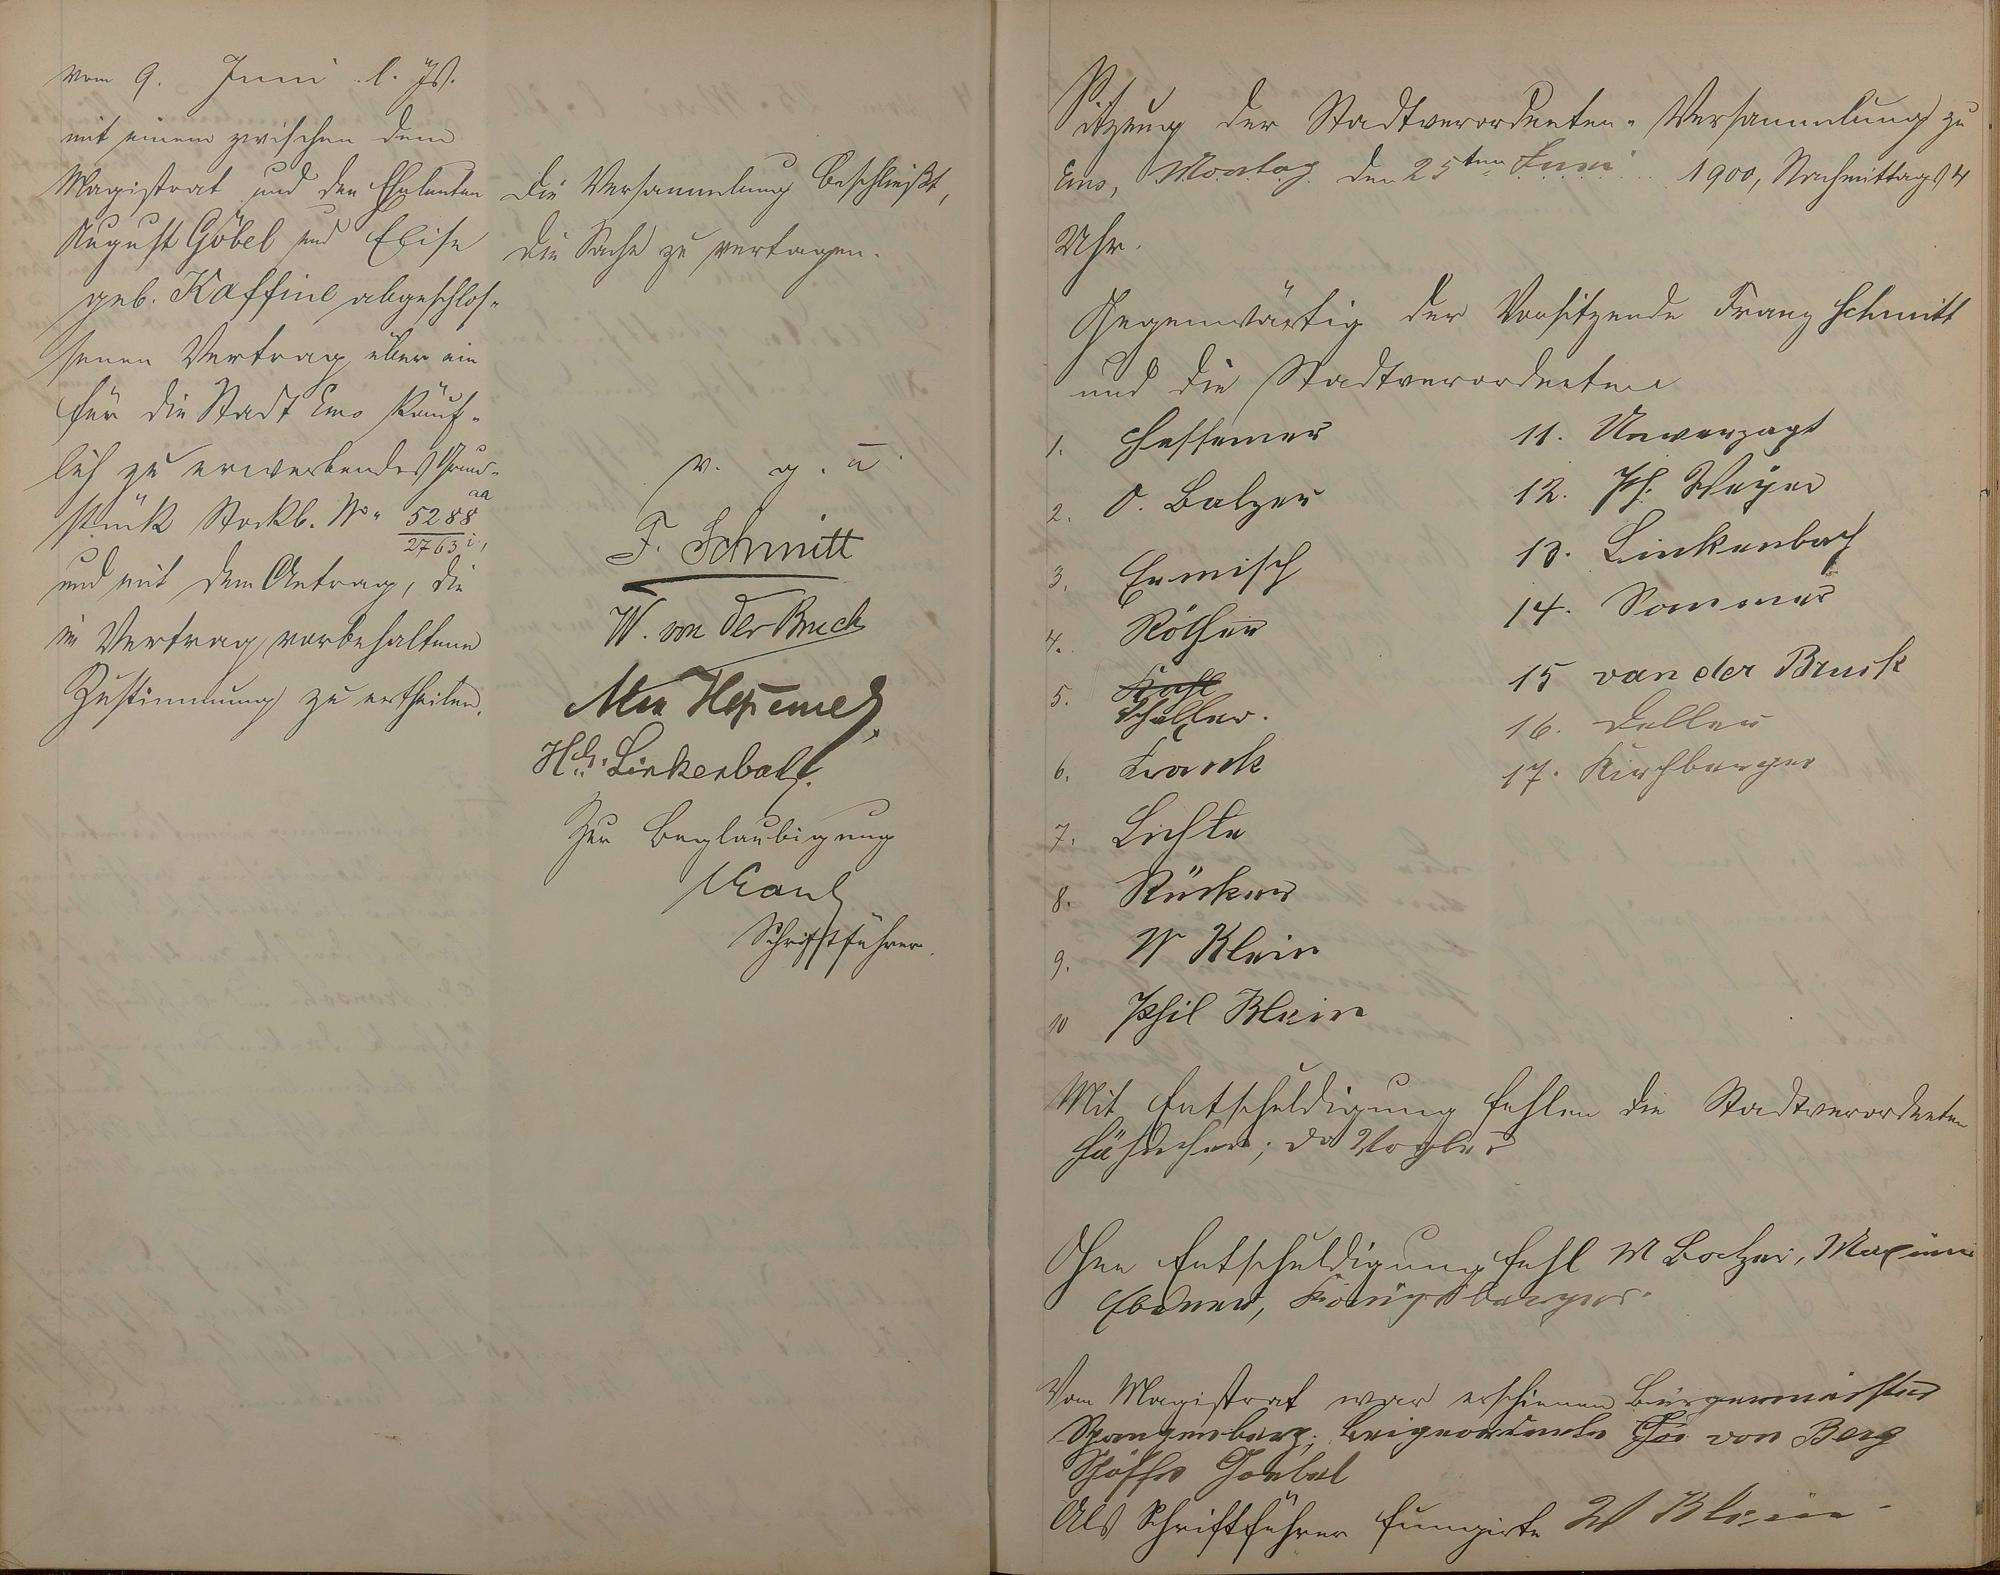 vom 9. Juni l. Js.
mit einem zwischen dem
Magistrat und den Eheleuten
August Göbel und Elise
geb. Kaffine abgeschlos-
senen Vertrag über ein
für die Stadt Ems käuf-
lich zu erwerbendes Grund-
stück Stockb. No. 5288 aa
2763 i,
und mit dem Antrag, die
im Vertrag vorbehaltene
Zustimmung zu ertheilen.
Die Versammlung beschließt,
die Sache zu vertagen.
v. g. u.
F. Schmitt
W. von der Bruck
Hch. Linkenbach
Zur Beglaubigung
Schriftführer.
Sitzung der Stadtverordneten-Versammlung zu
Ems, Montag den 25ten Juni 1900, Nachmittags 4
Uhr.
Gegenwärtig der Vorsitzende Franz Schmitt
und die Stadtverordneten
1. Hessemer
2. O. Balzer
3. Ermisch
4. Röther
5. Schaller.
6. Franck
7. Lichte
8. Rücker
9. W Klein
10 Phil Klein
11. Unverzagt
12. Ph. Weyer
13. Linkenbach
14. Sommer
15 van der Bruck
16. Deller
17. Kirchberger
Mit Entschuldigung fehlen die Stadtverordneten
Ohne Entschuldigung fehl M Balzer,
Ebener, Königsberger.
Vom Magistrat war erschienen Bürgermeister
Spangenberg, Beigeordneter von Berg
Schöffe Goebel
Als Schriftführer fungirte W Klein